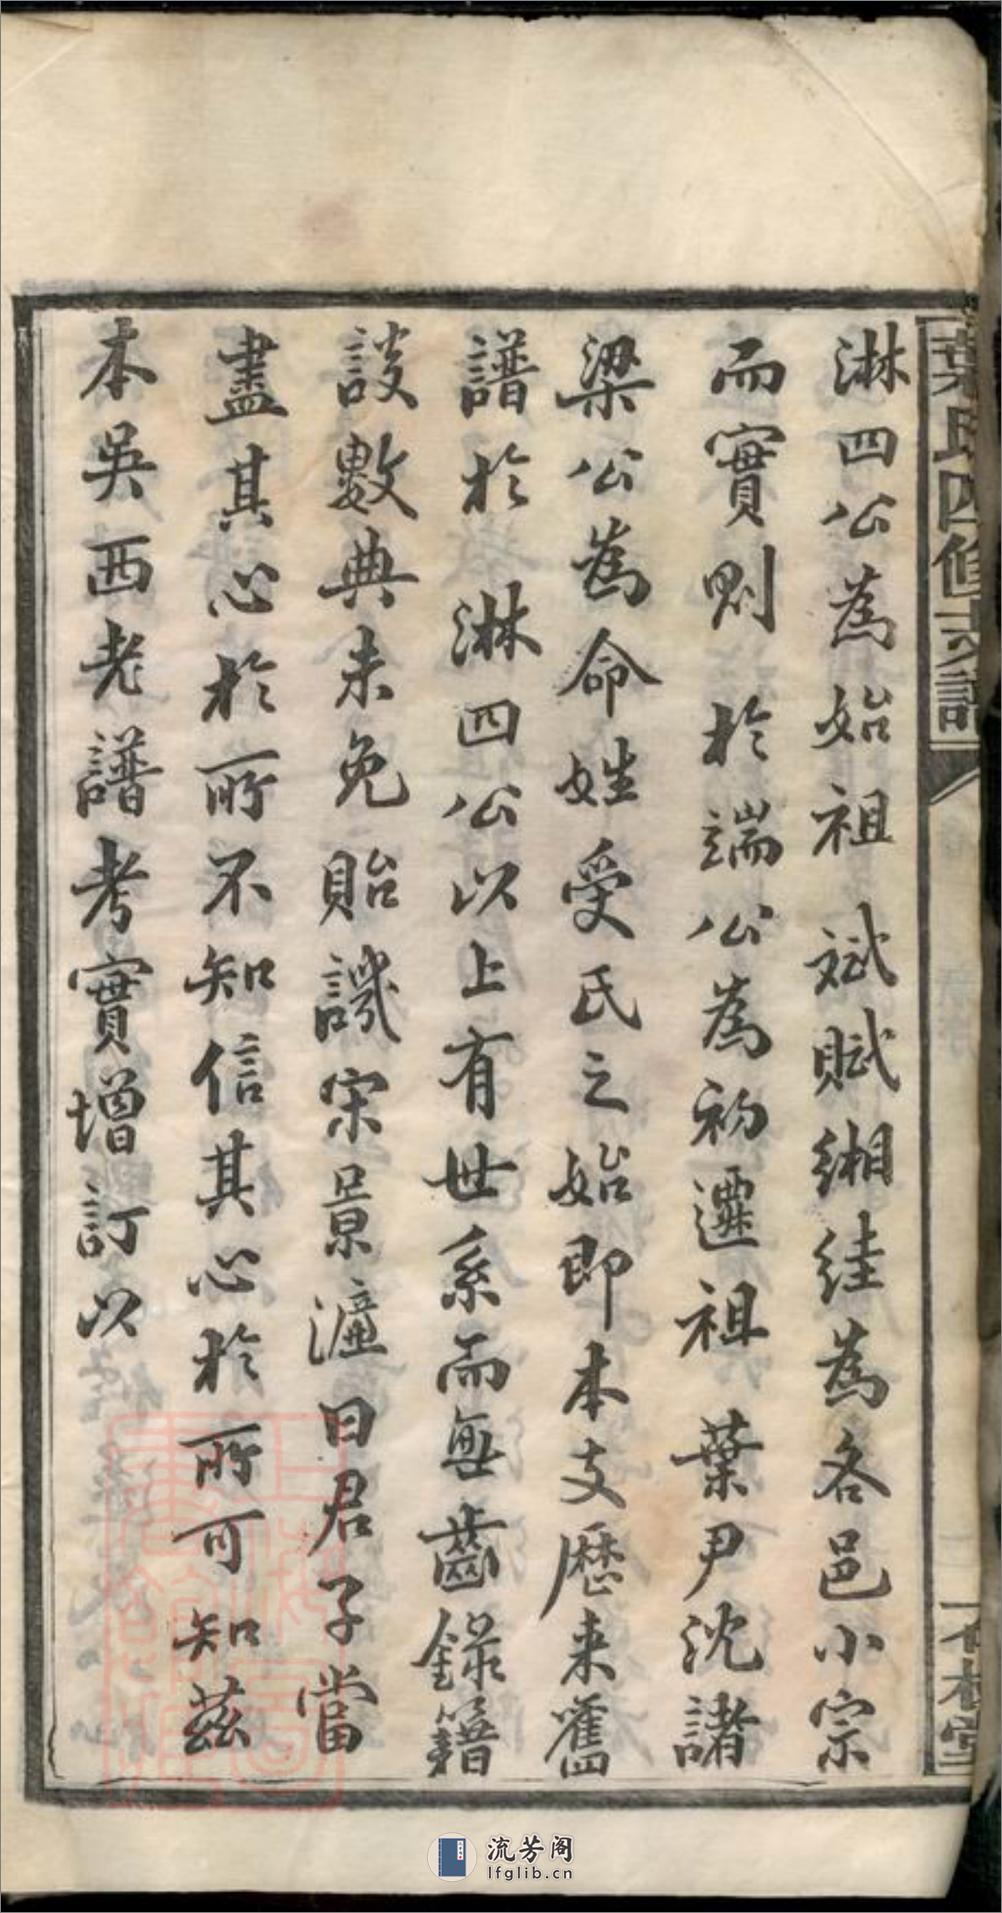 葉氏四修支譜
淋四公為始祖 斌賦緗絓為各邑小宗
而實則 於端公為初遷祖 葉尹沈諸
梁公為命姓受氏之始即本支歷来舊
譜於 淋四公以上有世系而無齒錄籍
談數典未免貽譏宋景濂曰君子當
盡其心於所不知信其心於所可知茲
本吳西老譜考實增訂以
流芳阁
lfglib.cn